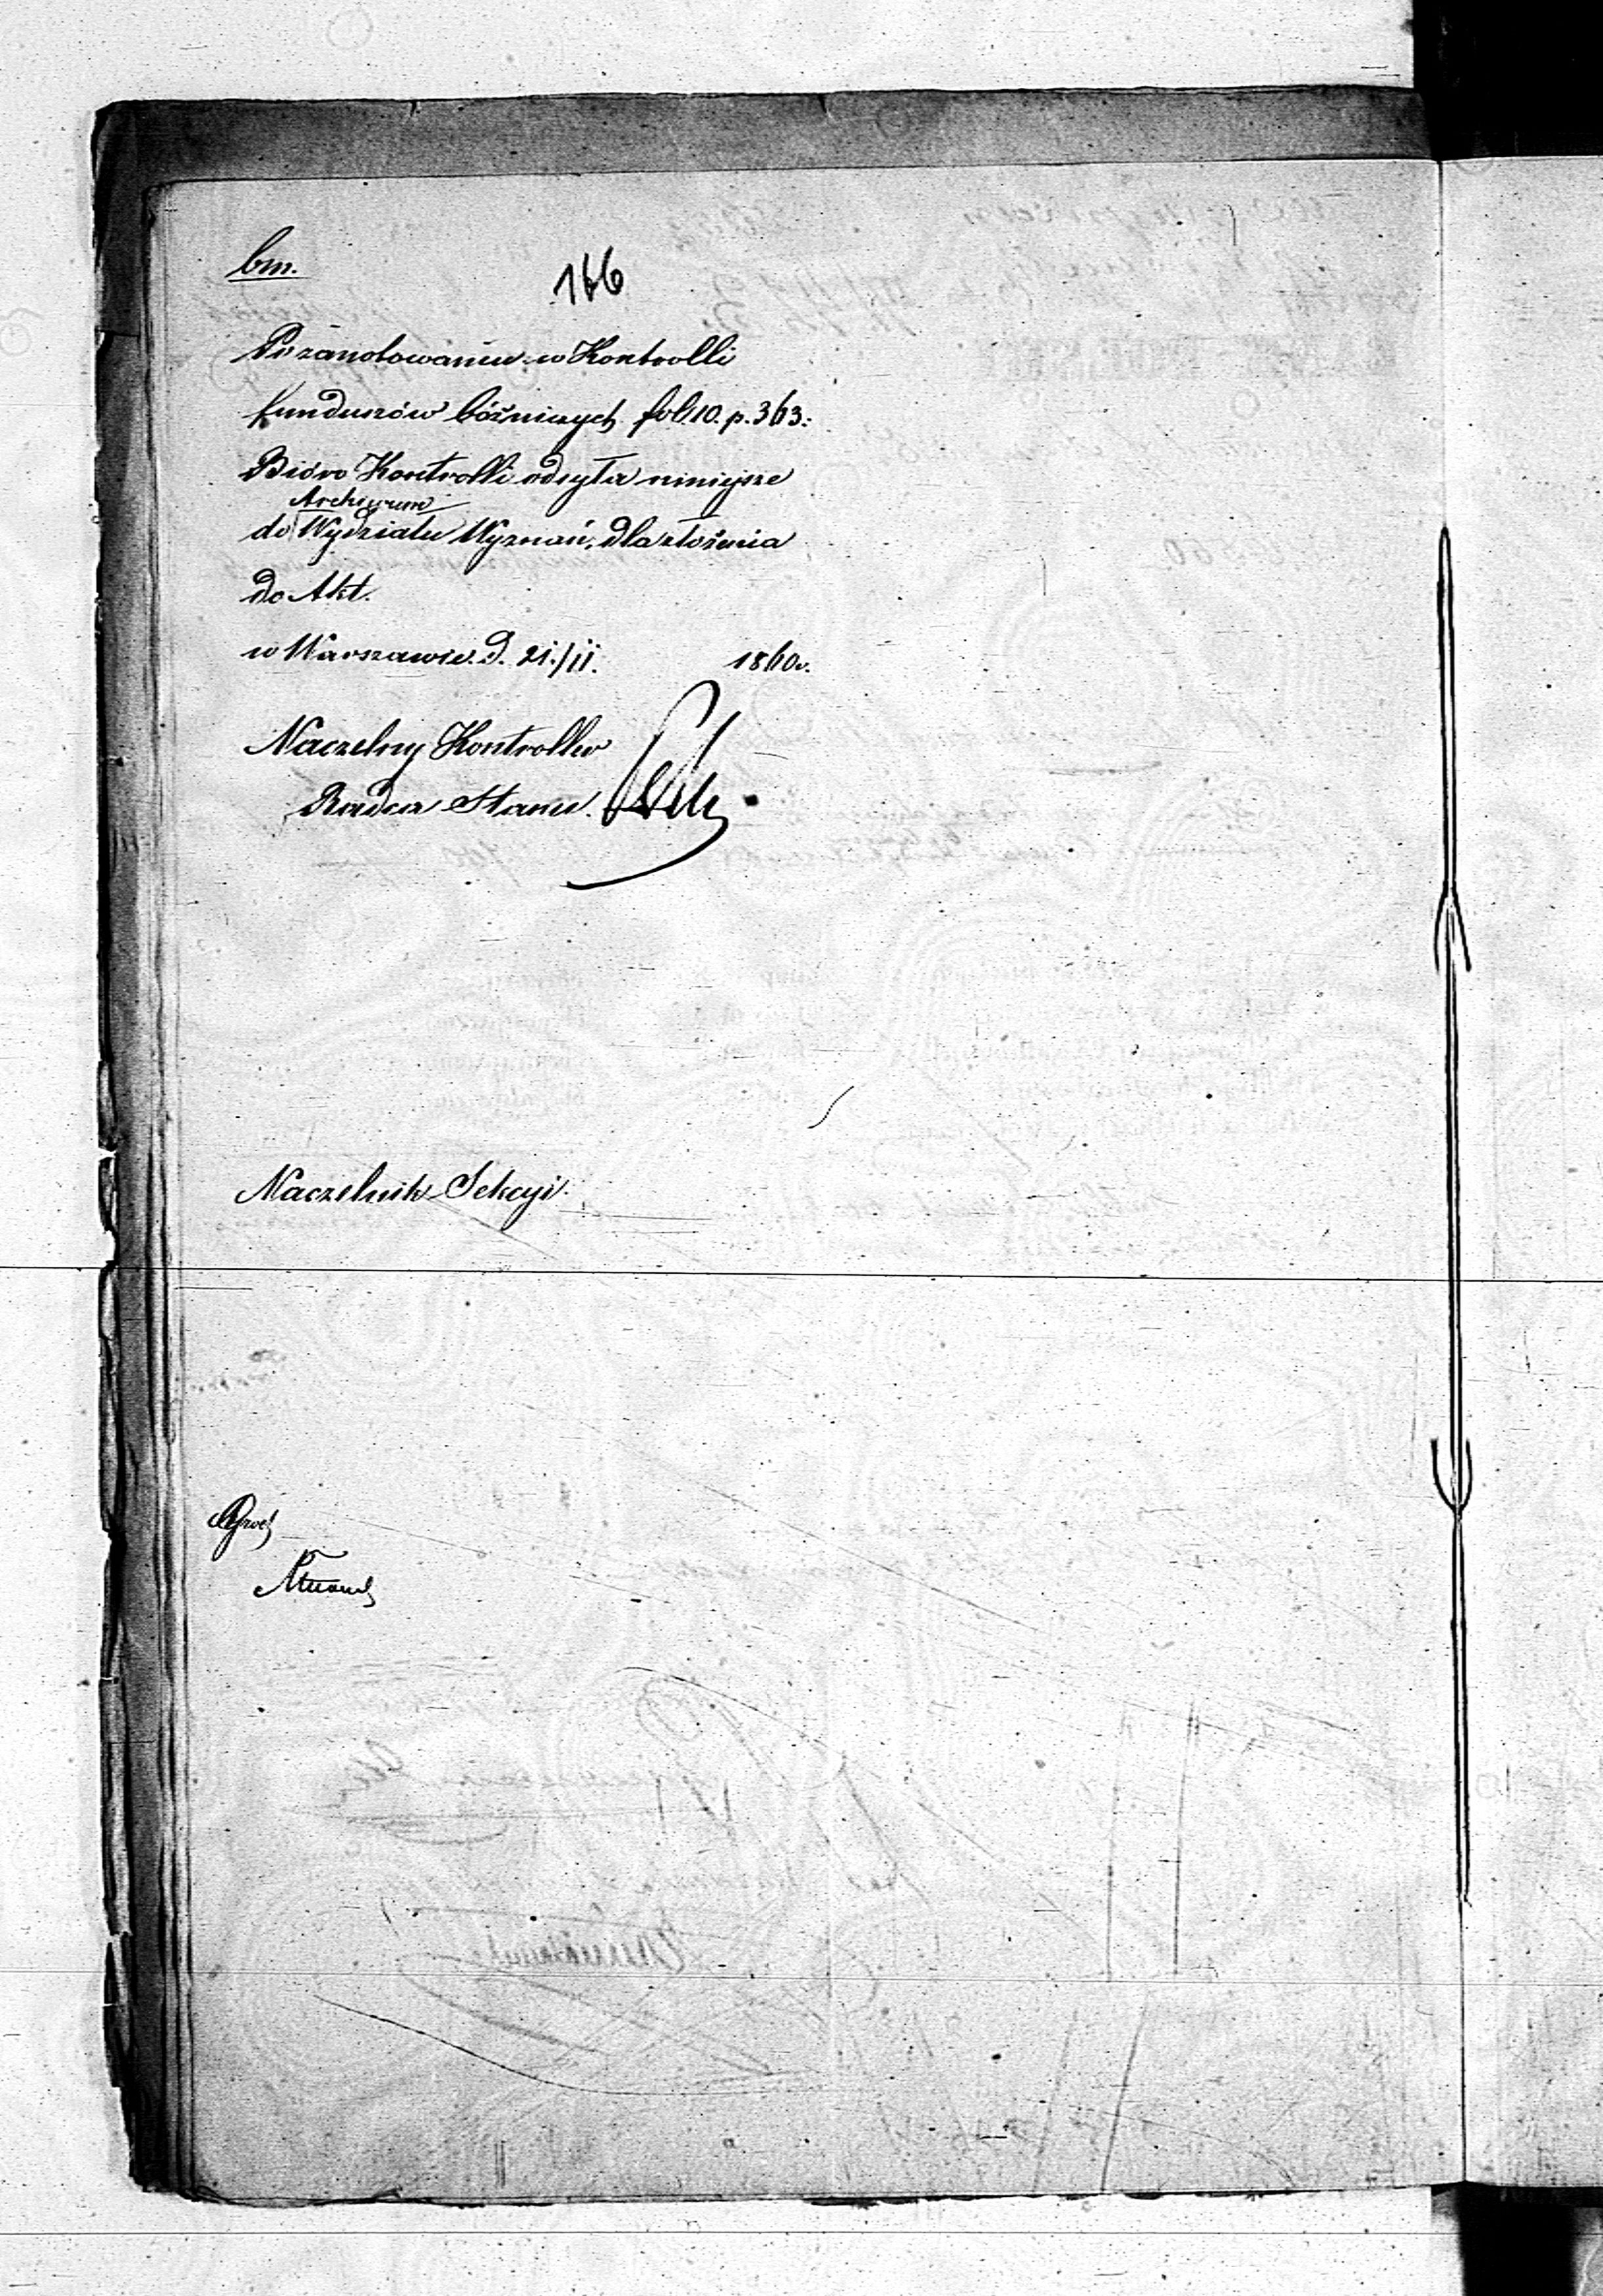 bm.
166
Po zanotowaniu w Kontrolli
funduszów bóżniczych fol. 10. p. 363:
Bióro Kontrolli odsyła niniejsze
Archiwum
do Wydziału Wyznań, dla złożenia
do Akt.
w Warszawie d. 21/11. 1860 r.
Naczelny Kontroller
Radca Stanu.
Naczelnik Sekcyi.